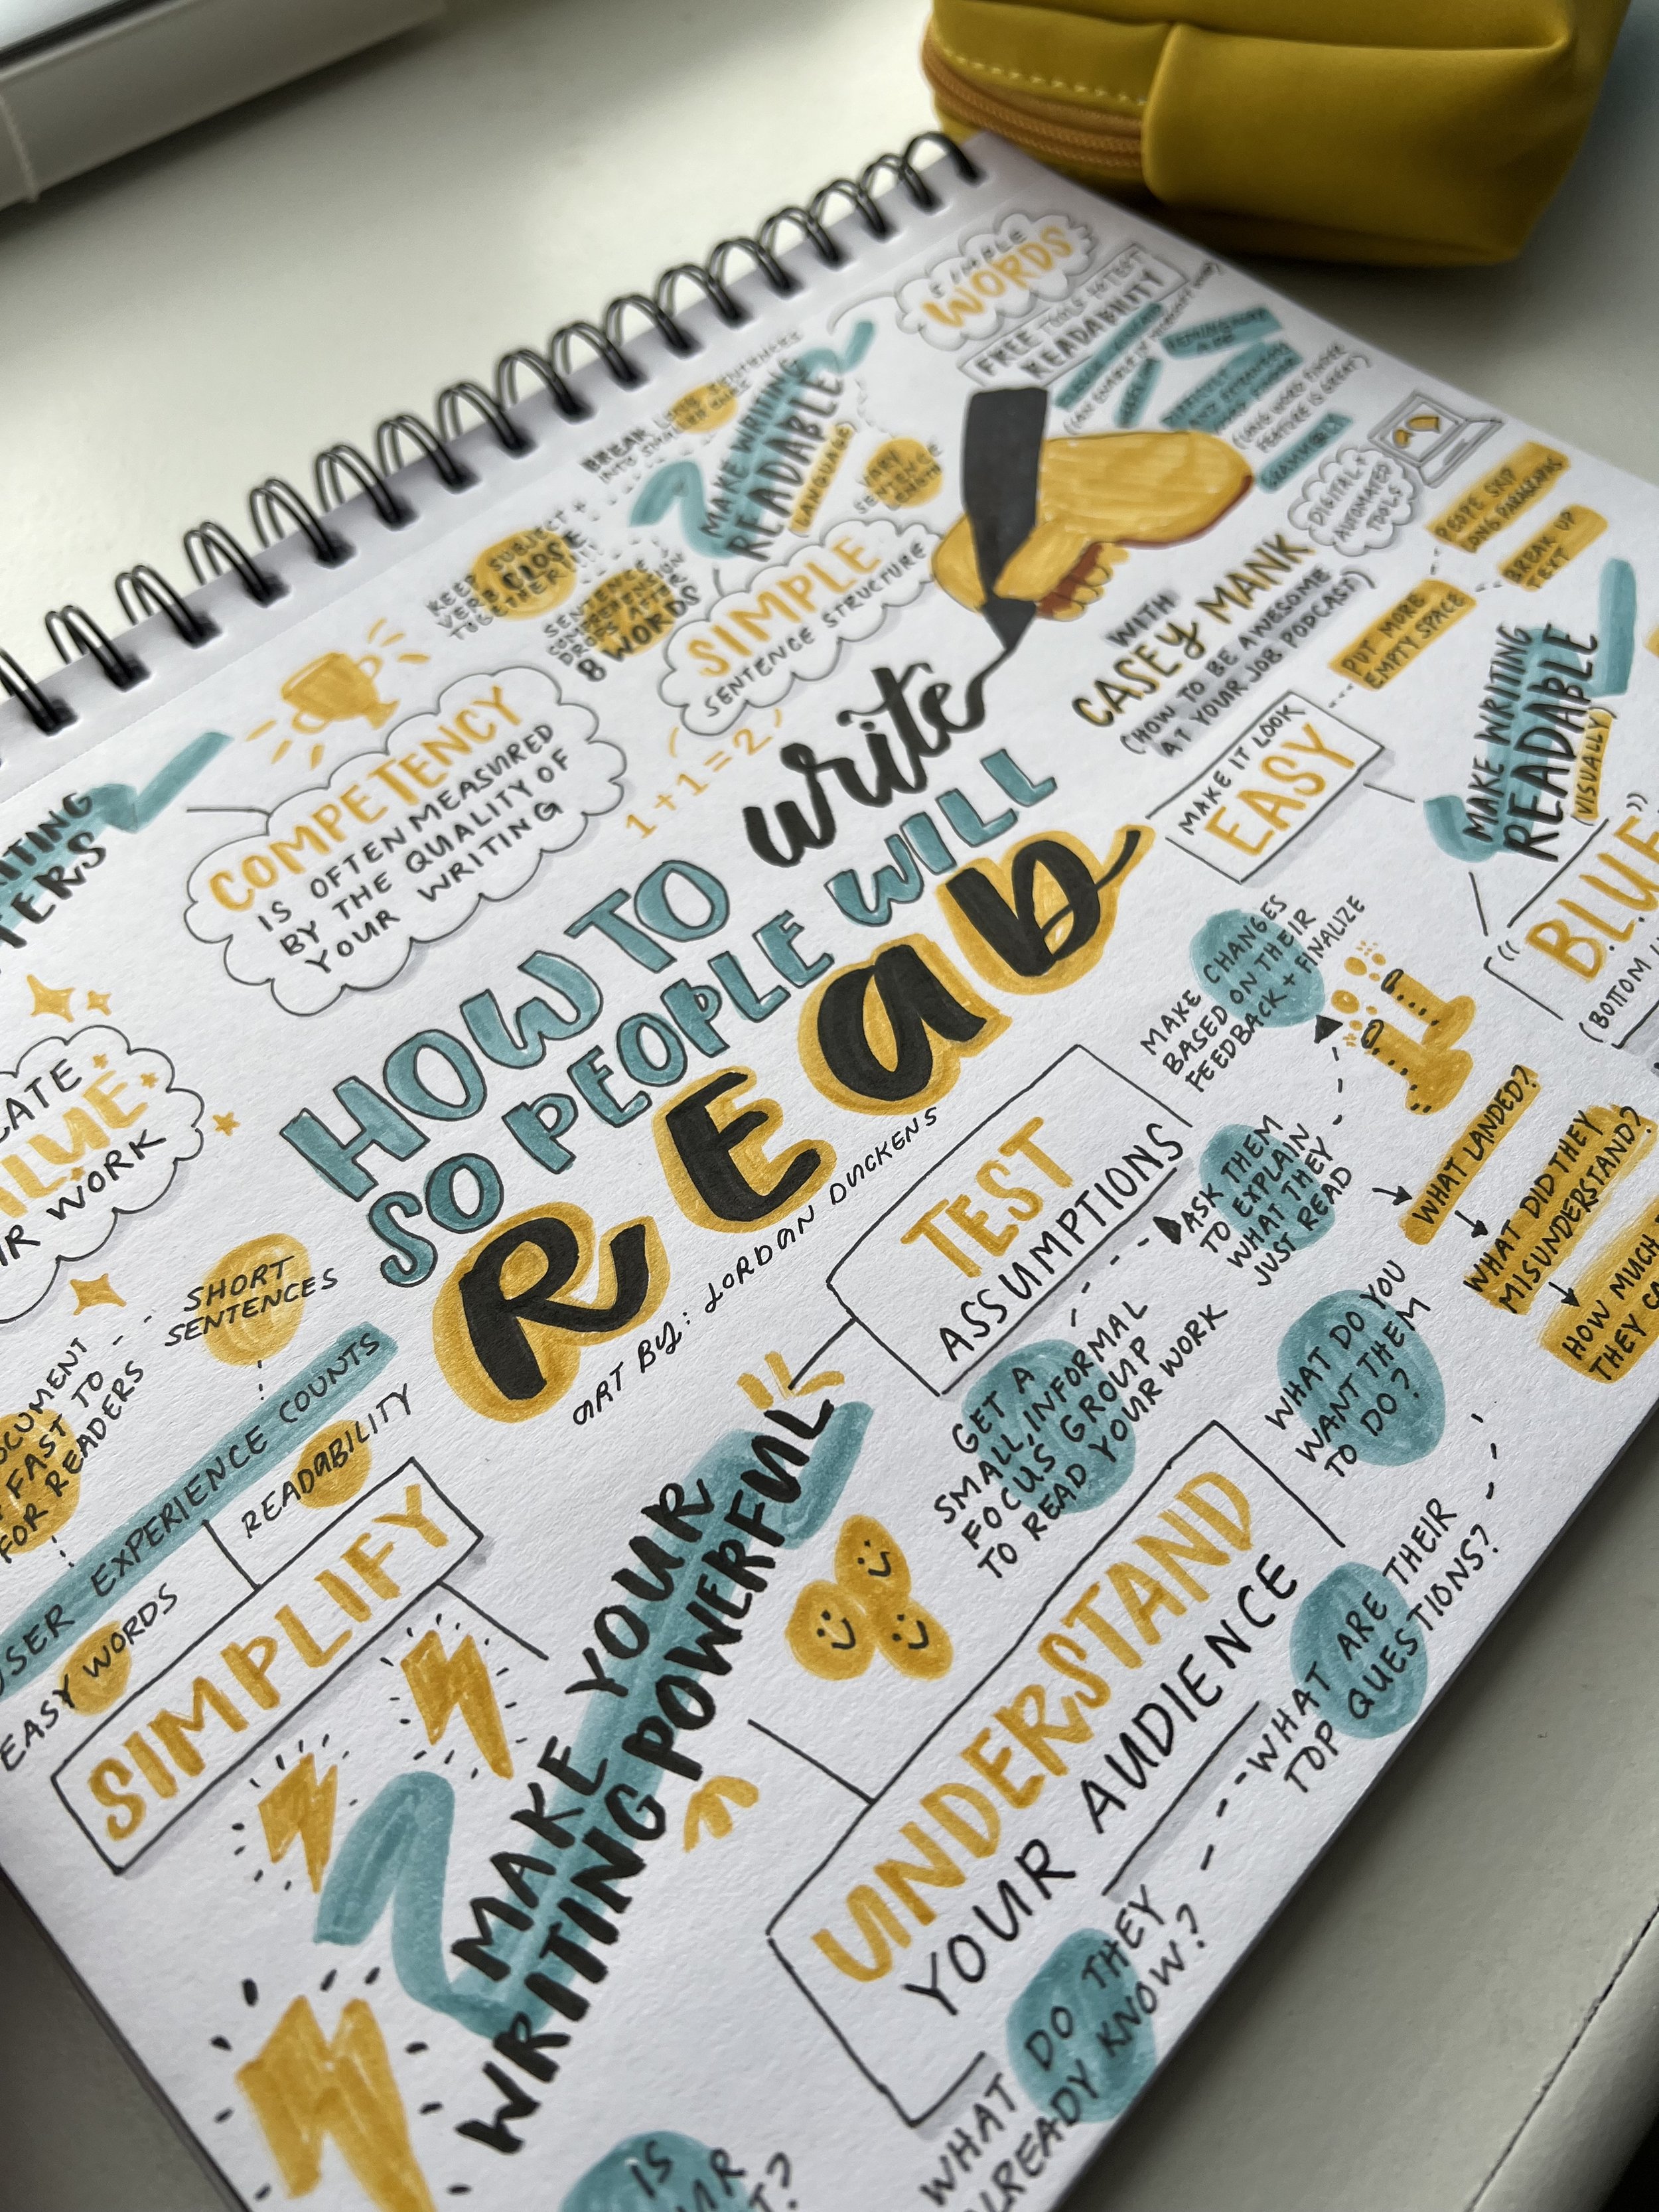 HOW TO write
SO PEOPLE WILL
READ
ART BY: JORDAN DUCKENS
WITH
CASEY MANK
(HOW TO BE AWESOME
AT YOUR JOB PODCAST)
COMPETENCY
IS OFTEN MEASURED
BY THE QUALITY OF
YOUR WRITING
MAKE WRITING
READABLE
(LANGUAGE)
SIMPLE
SENTENCE STRUCTURE
1+1=2
KEEP SUBJECT +
VERB CLOSE
TOGETHER!!!
SENTENCE
COMPREHENSION
DROPS AFTER
8 WORDS
BREAK LONG SENTENCES
VARY
SENTENCE
LENGTH
SIMPLE
WORDS
FREE TOOLS TO TEST
READABILITY
(LONG WORD FINDER
FEATURE IS GREAT)
DIGITAL +
AUTOMATED
TOOLS
PEOPLE SKIP
LONG PARAGRAPHS
BREAK UP
TEXT
PUT MORE
EMPTY SPACE
MAKE IT LOOK
EASY
MAKE WRITING
READABLE
(VISUALLY)
"BLU
(BOTTOM
MAKE CHANGES
BASED ON THEIR
FEEDBACK + FINALIZE
TEST
ASSUMPTIONS
ASK THEM
TO EXPLAIN
WHAT THEY
JUST READ
WHAT LANDED?
WHAT DID THEY
MISUNDERSTAND?
HOW MUCH
THEY
GET A
SMALL, INFORMAL
FOCUS GROUP
TO READ YOUR WORK
WHAT DO YOU
WANT THEM
TO DO?
UNDERSTAND
YOUR AUDIENCE
WHAT ARE THEIR
TOP QUESTIONS?
WHAT DO THEY
ALREADY KNOW?
MAKE YOUR
WRITING POWERFUL
SHORT
SENTENCES
USER EXPERIENCE COUNTS
READABILITY
EASY WORDS
SIMPLIFY
FAST TO
FOR READERS
WORK
IS